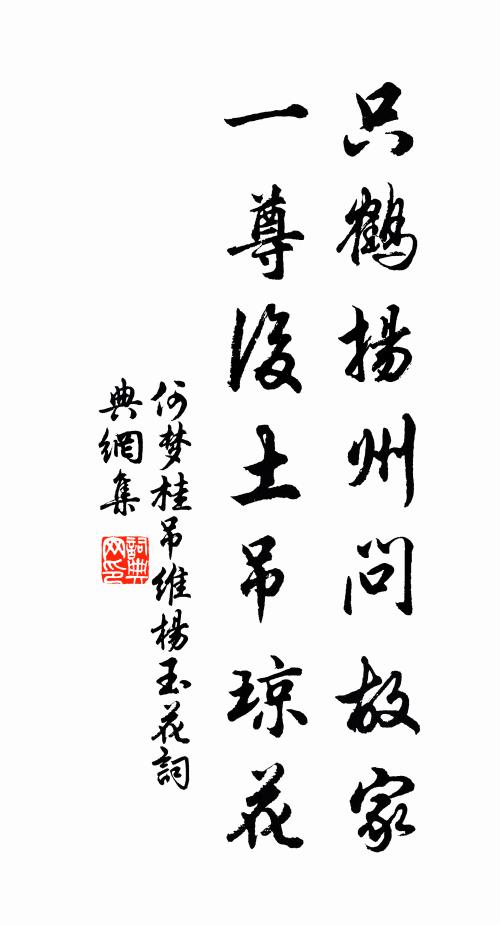 只鶴揚州問故家
一尊後土吊琼花
何梦桂吊維楊玉花詞
典網集
詞典
网印